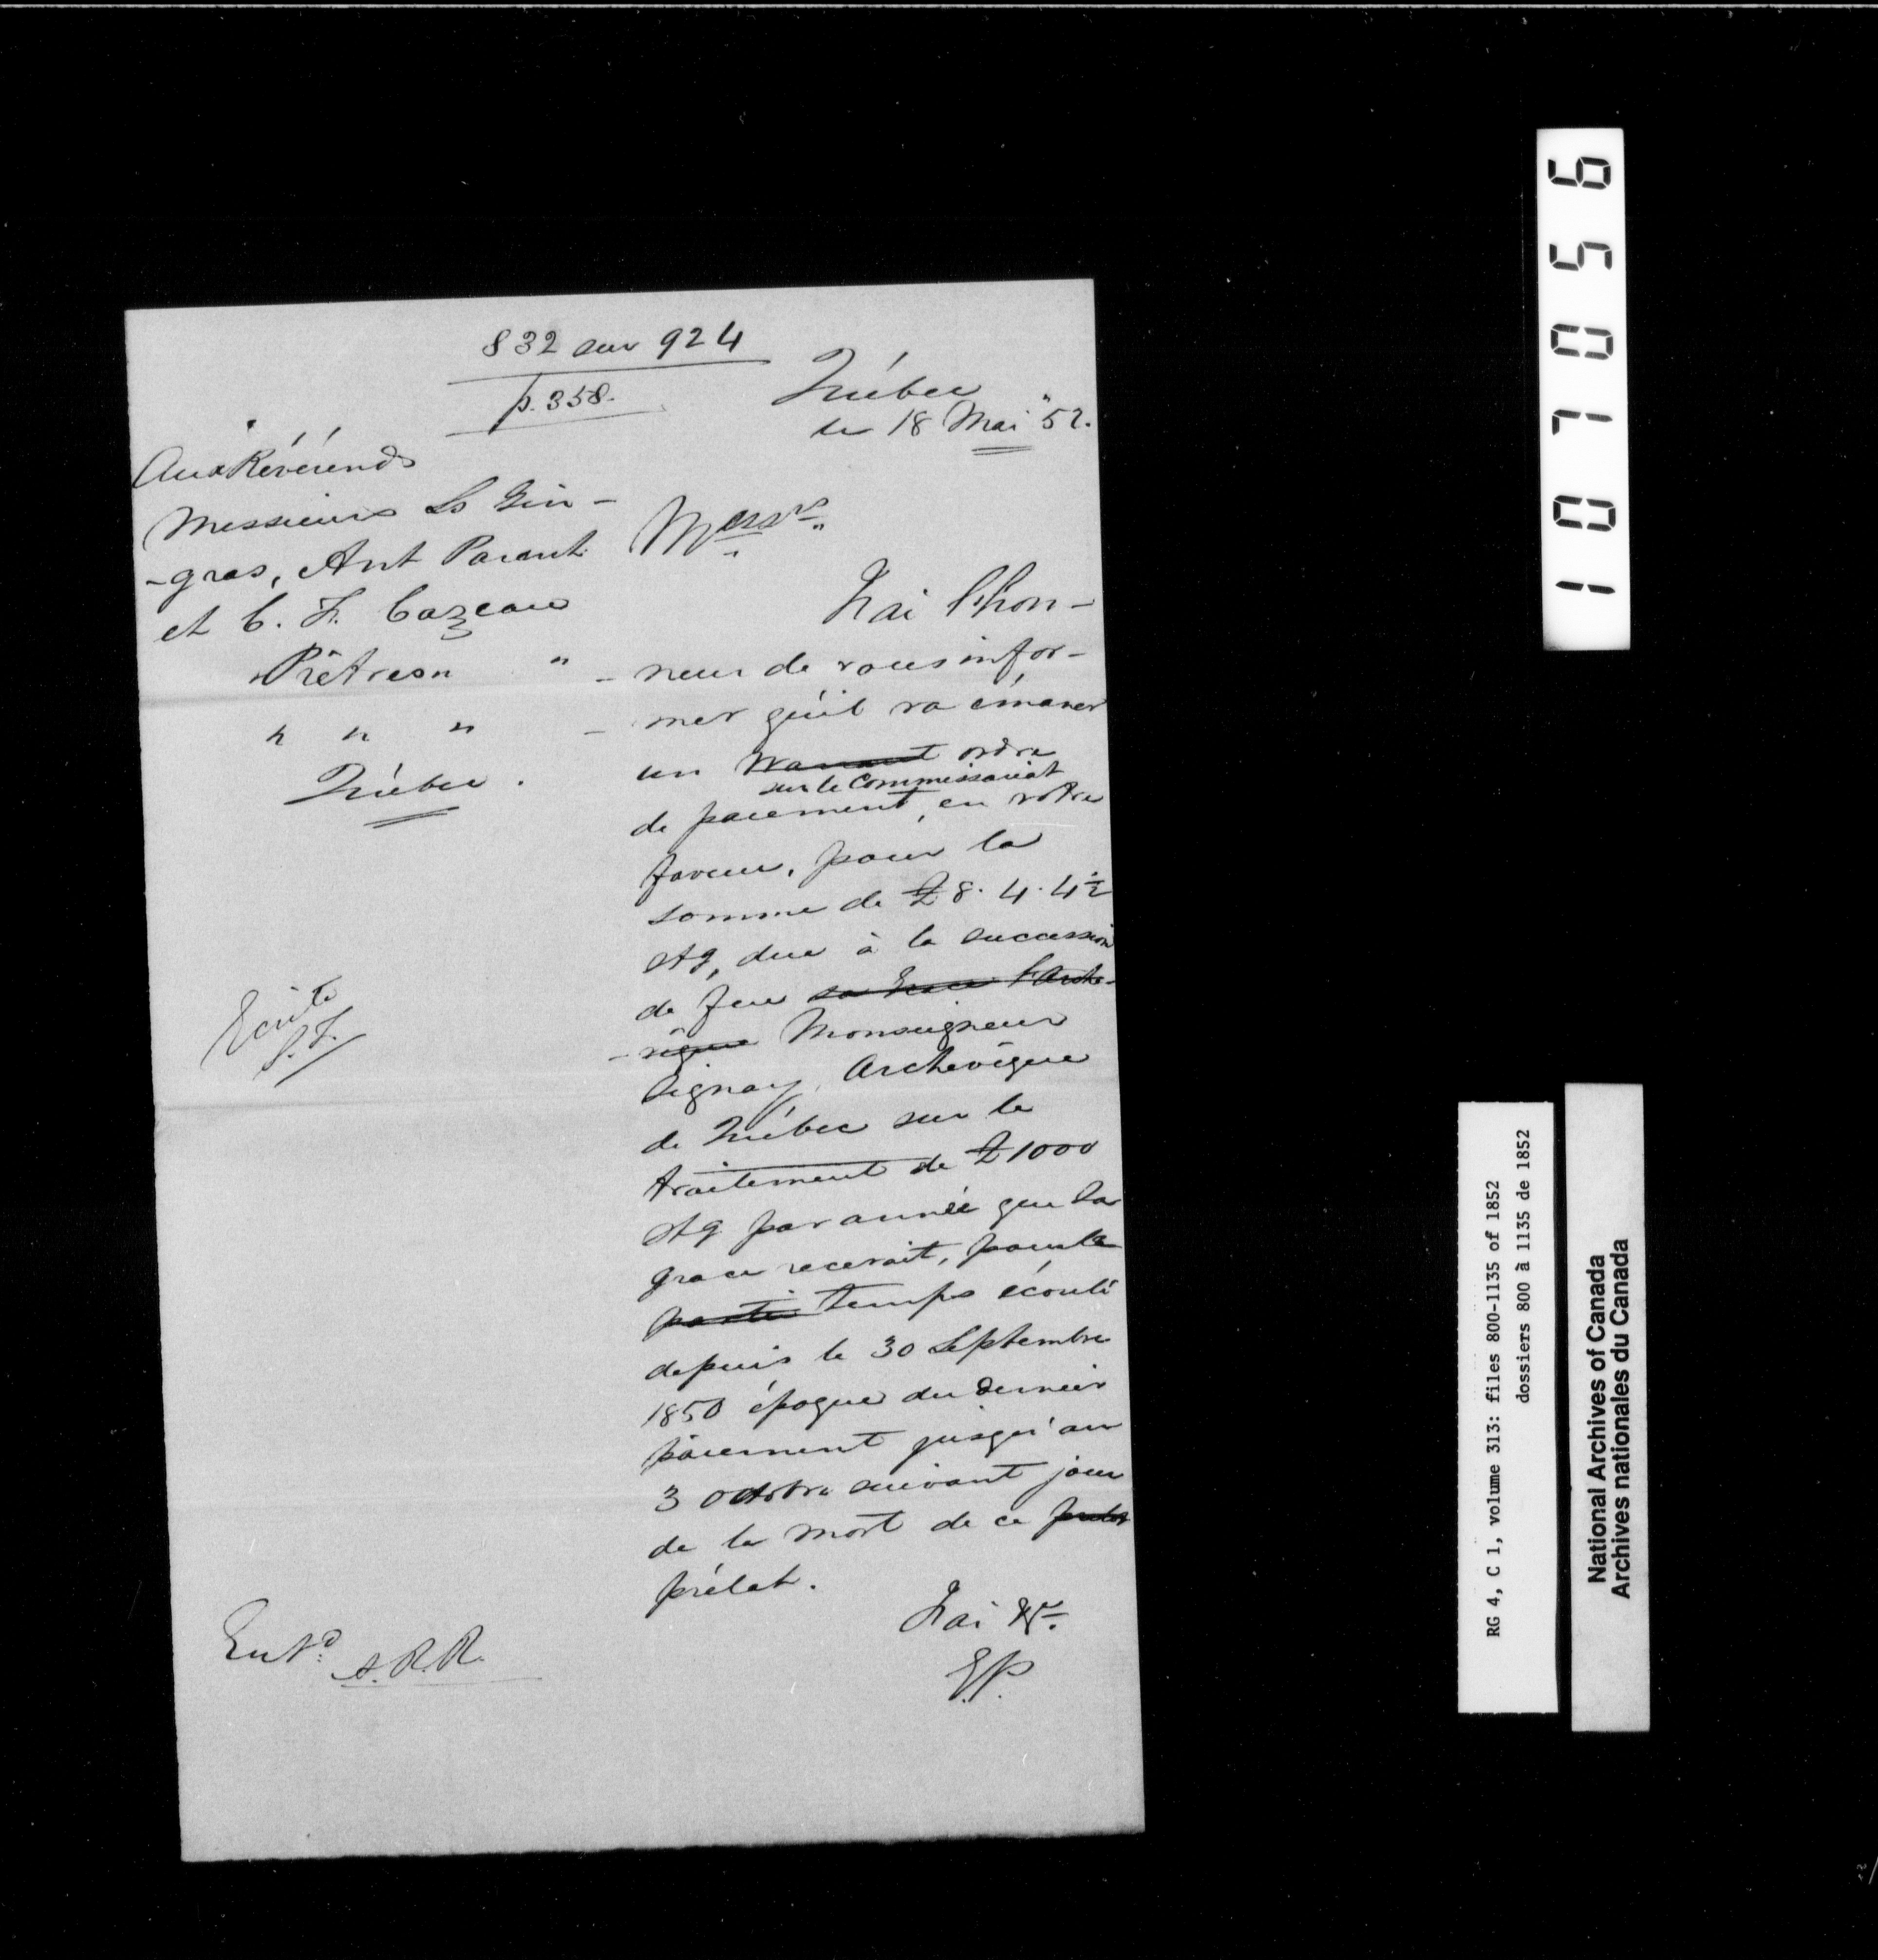 832 sur 924
p. 358.
Québec
le 18 Mai "52.
Aux Révérends
Messieurs Ls Gin-
-gras, Ant Parant
et C. F. Cazeau
"Prêtres" "
" " "
Québec.
Messrs.
J'ai l'hon-
-neur de vous infor-
-mer qu'il va émaner
un Warrant ordre
sur le Commissariat
de paiement, en votre
faveur, pour la
somme de £8.4.4½
stg, due à la succession
de feu sa Grace l'Arche-
-vêque Monseigneur
Signay, Archevêque
de Québec sur le
traitement de £1000
stg par année que Sa
Grace recevait, pour le
partie temps écoulé
depuis le 30 Septembre
1850 époque du dernier
paiement jusqu'au
3 Octobre suivant jour
de la mort de ce
prélat.
J'ai &c.
E.P.
Ecrite
S.F.
Entd. A.R.R.
107056
RG 4, C 1, volume 313: files 800-1135 of 1852
dossiers 800 à 1135 de 1852
National Archives of Canada
Archives nationales du Canada